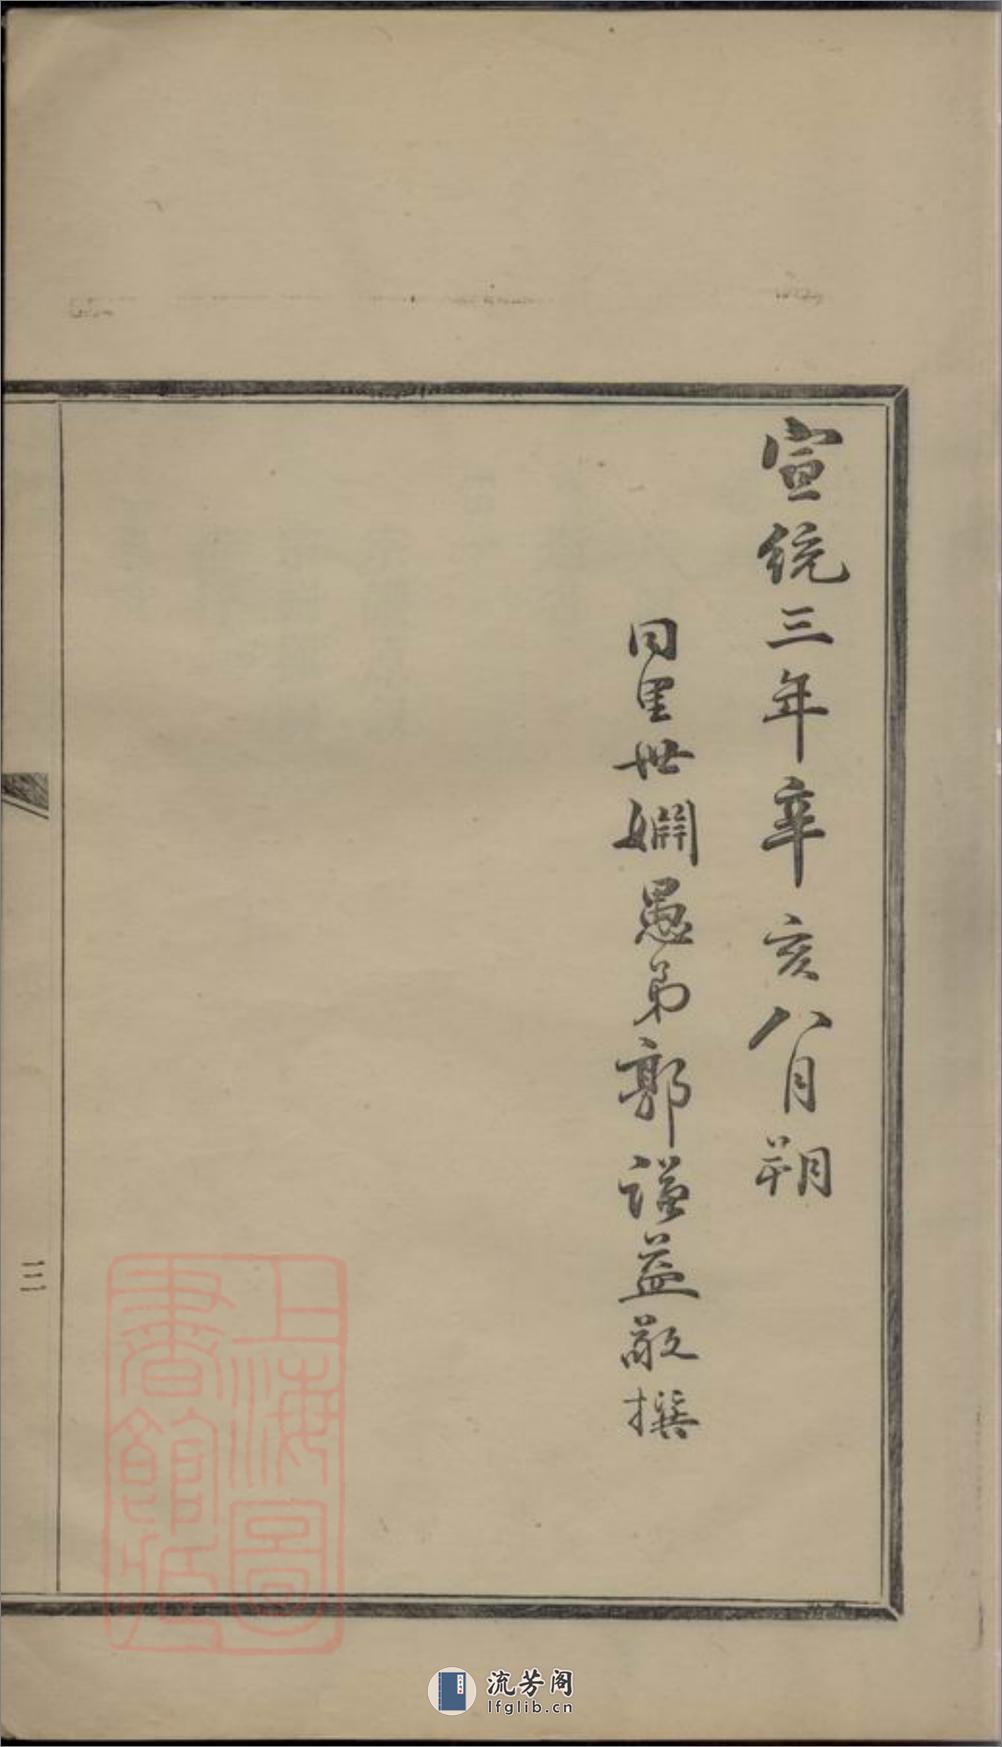 宣統三年辛亥八月朔
同里世嫻愚弟郭謙益敬撰
三
上海圖書館藏
流芳阁
lfglib.cn